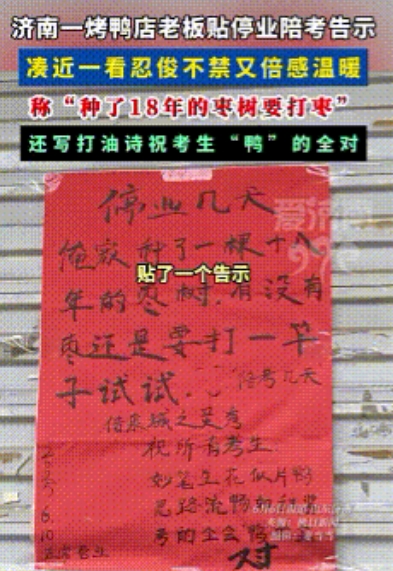 济南一烤鸭店老板贴停业陪考告示
凑近一看忍俊不禁又倍感温暖
称“种了18年的枣树要打枣”
还写打油诗祝考生“鸭”的全对
爱济南
停业几天
俺家种了一棵十八
贴了一个告示
年的枣树.有没有
枣还是要打一竿
子试试.
陪考几天
祝所有考生
妙笔生花似片鸭
思路流畅如
考的全会鸭
对
6.10
营业